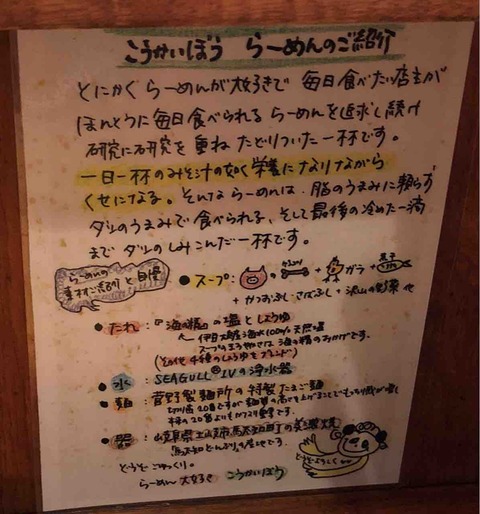 こうかいぼう らーめんのご紹介
とにかく らーめんが大好きで 毎日食べたい店主が
ほんとうに毎日食べられる らーめんを追求し続け
研究に研究を重ね たどりついた一杯です。
一日一杯のみそ汁の如く栄養になりながら
くせになる。そんならーめんは、脂のうまみに頼らず
ダシのうまみで食べられる、そして最後の冷めた一滴
まで ダシのしみこんだ一杯です。
らーめんの
素材ご紹介と自慢
・スープ: の げんこつ + ガラ + 煮干
+ かつおぶし・さばぶし + 沢山の野菜 他
・たれ:『海の精』の塩としょうゆ
伊豆大島海水100%天然塩
スープのまろやかさは 海の精のおかげです。
(その他 4種のしょうゆをブレンド)
・水: SEAGULL® IVの浄水器
・麺: 菅野製麺所の特製たまご麺
切刃は20番ですが
・器: 岐阜県土岐市駄知町の美濃焼
駄知どんぶりの産地です。
どうぞごゆっくり。
らーめん 大好き こうかいぼう
どうぞよろしく